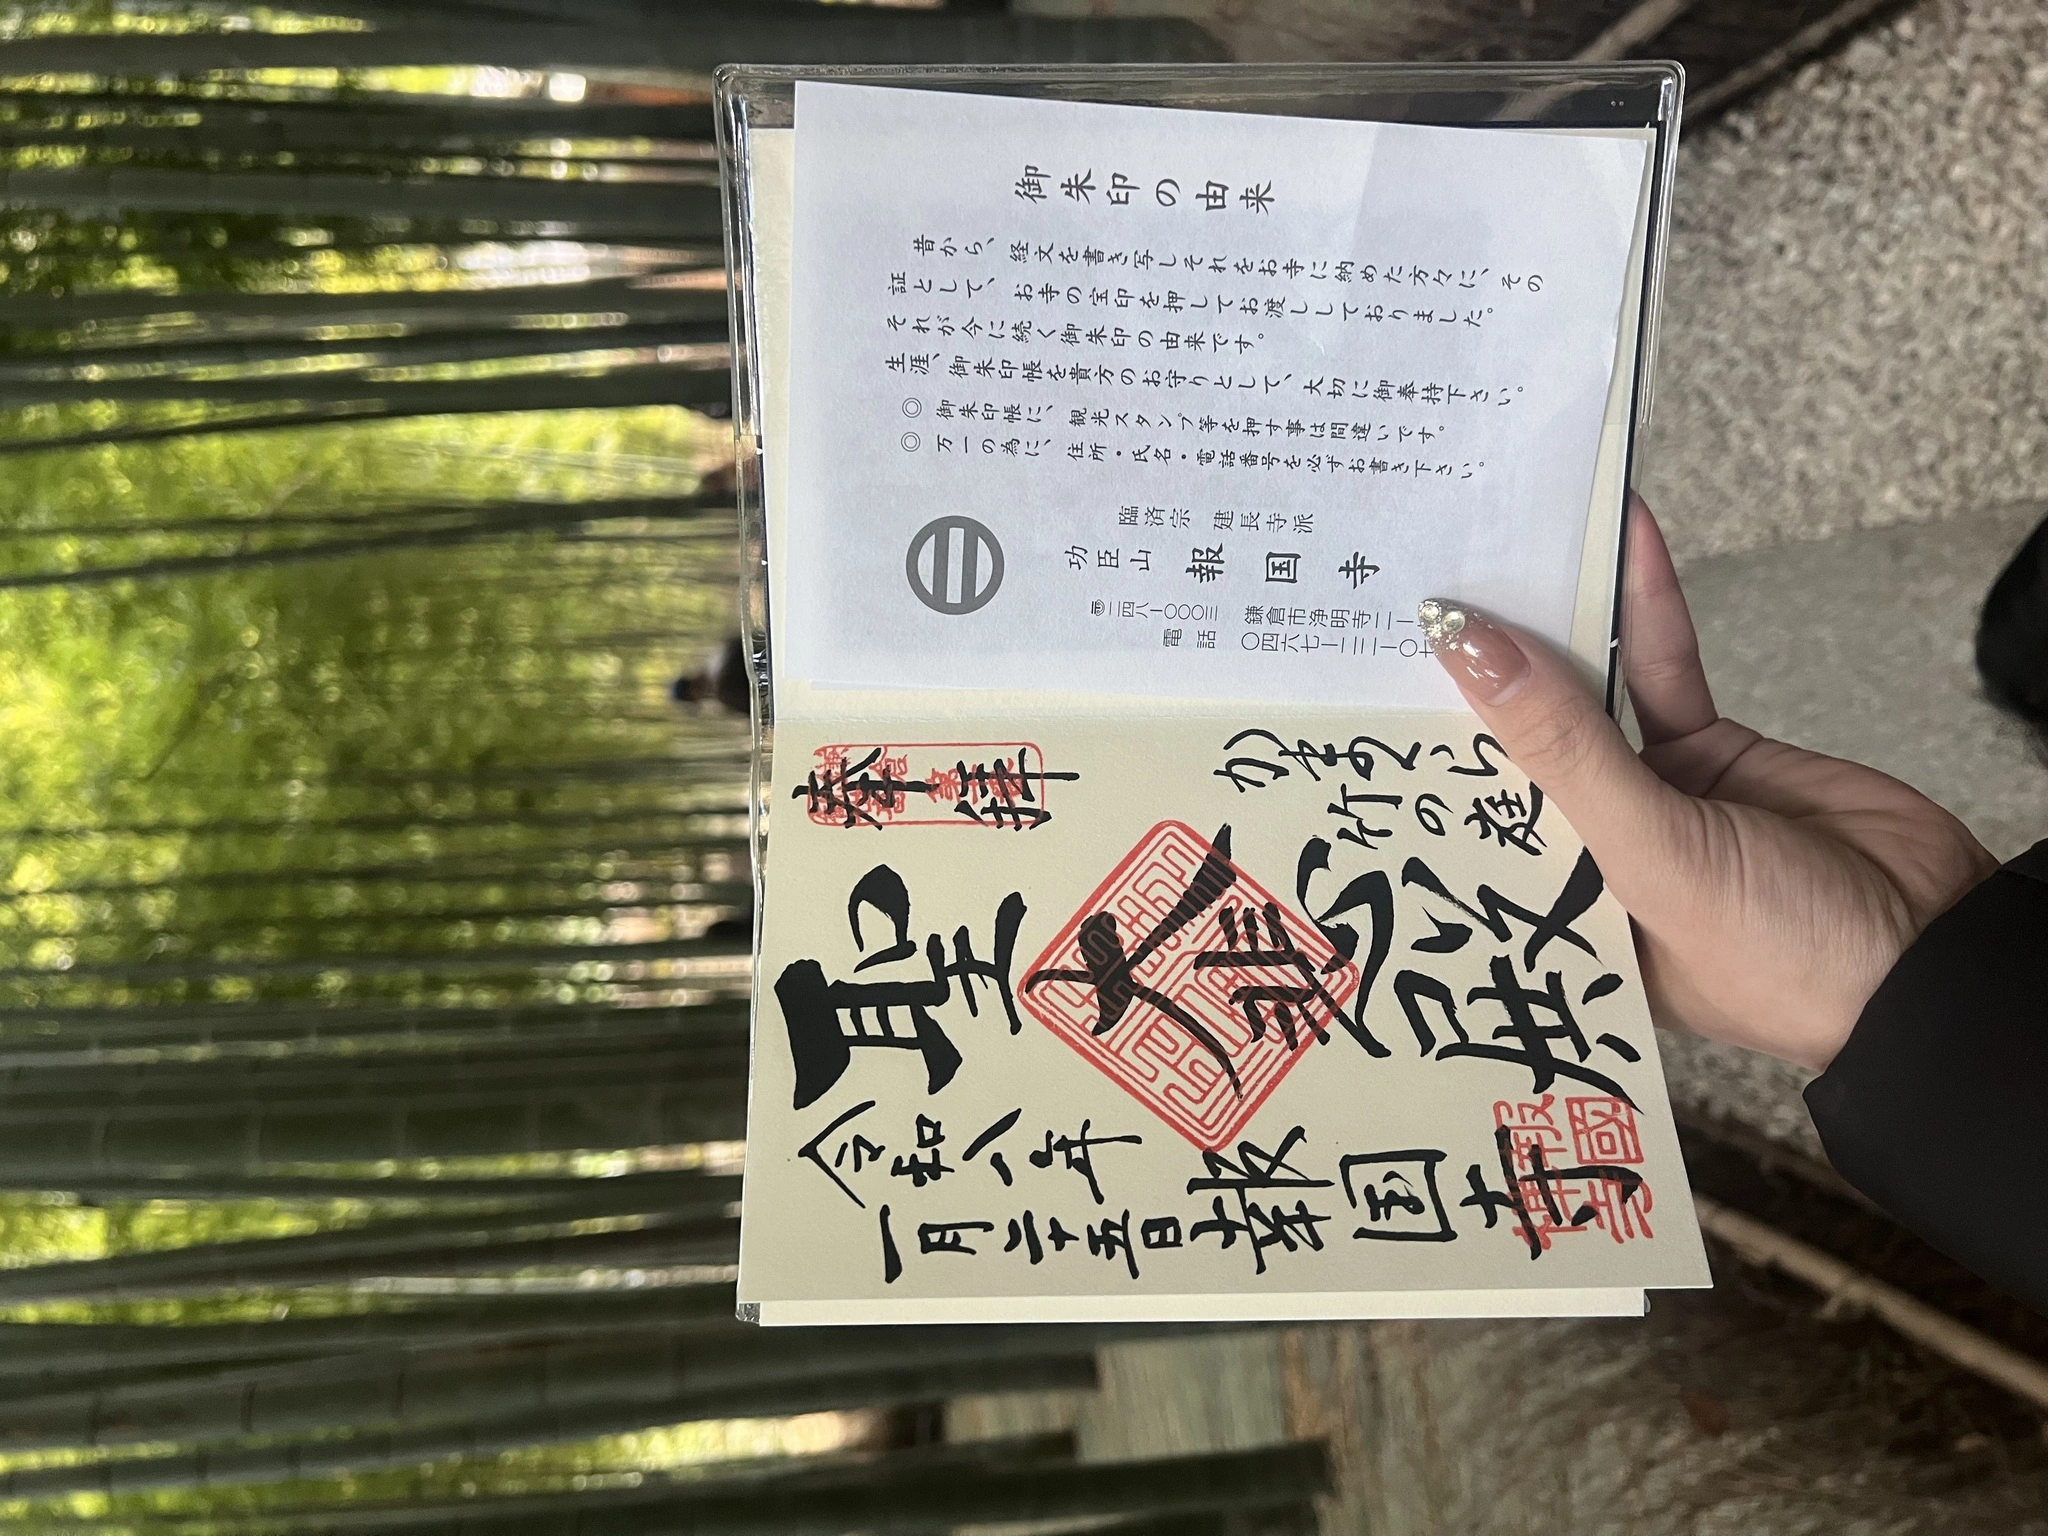 御朱印の由来
昔から、経文を書き写しそれをお寺に納めた方々に、その
証として、お寺の宝印を押してお渡ししておりました。
それが今に続く御朱印の由来です。
生涯、御朱印帳を貴方のお守りとして、大切に御奉持下さい。
◎ 御朱印帳に、観光スタンプ等を押す事は間違いです。
◎ 万一の為に、住所・氏名・電話番号を必ずお書き下さい。
臨済宗 建長寺派
功臣山 報国寺
〒二四八-〇〇〇三 鎌倉市浄明寺二-
電話 〇四六七-二二-〇七
奉拝
かまくら
竹の庭
聖大悲殿
令和八年
一月二十五日
報国寺
報國
禪寺